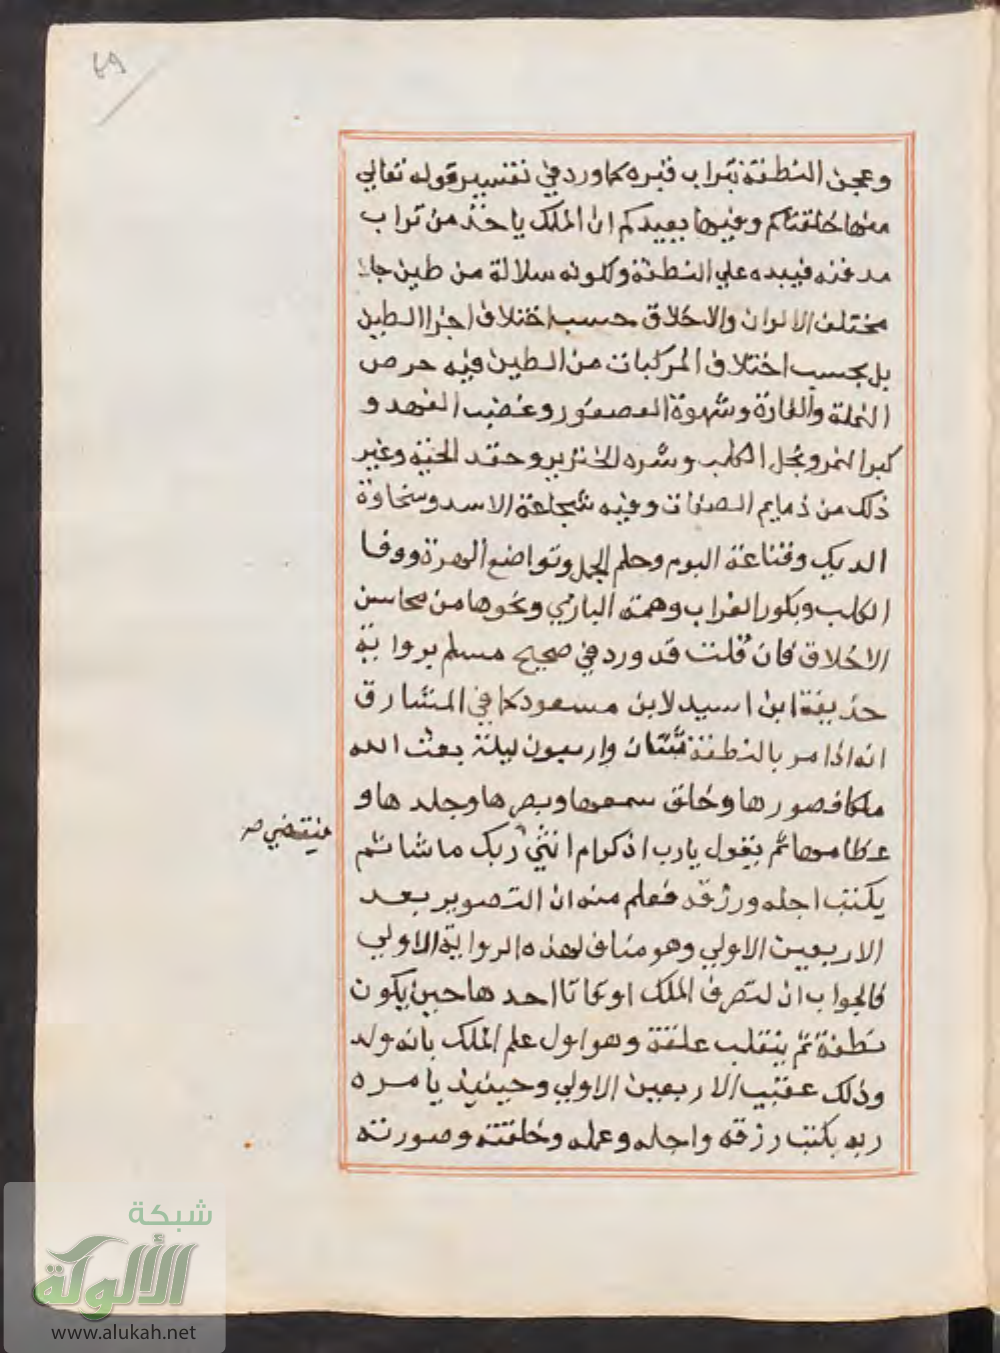 ٤٩
وعجن النطفة بتراب قبره كما ورد في تفسير قوله تعالي
منها خلقناكم وفيها نعيدكم ان الملك ياخذ من تراب
مدفنه فيبده علي النطفة وكونه سلالة من طين جا
مختلف الالوان والاخلاق حسب اختلاف اجزا الطين
بل بحسب اختلاف المركبات من الطين فيه حرص
النملة والفارة وشهوة العصفور وغضب الفهد و
كبر النمر وبخل الكلب وشره الخنزير وحقد الحية وغير
ذلك من ذمايم الصفات وفيه شجاعة الاسد وسخاوة
الديك وقناعة البوم وحلم الجمل وتواضع الهرة ووفا
الكلب وبكور الغراب وهمة البازي ونحوها من محاسن
الاخلاق فان قلت قد ورد في صحيح مسلم برواية
حذيفة ابن اسيد لابن مسعود كما في المشارق
انه اذا مر بالنطفة ثنتان واربعون ليلة بعث الله
ملكا فصورها وخلق سمعها وبصرها وجلدها و
عظامها ثم يقول يارب اذكر ام انثي ربك ما شا ثم
فيقضي صح
يكتب اجله ورزقه فعلم منه ان التصوير بعد
الاربعين الاولي وهو مناف لهذه الرواية الاولي
فالجواب ان لتصرف الملك اوقاتا احدها حين يكون
نطفة ثم ينقلب علقة وهو اول علم الملك بانه ولد
وذلك عقيب الاربعين الاولي وحينيذ يامره
ربه بكتب رزقه واجله وعمله وخلقته وصورته
شبكة
الألوكة
www.alukah.net